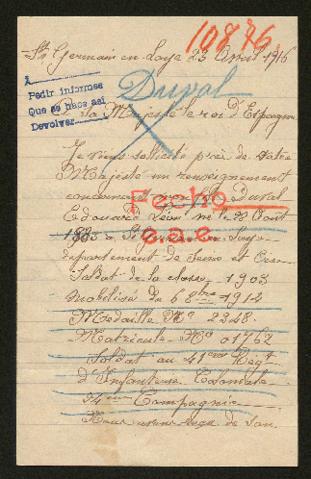 10876
St Germain en Laye 23 Avril 1916
A
Pedir informes
Que se hace así
Devolver
Duval
Sa Majesté le roi d'Espagne
Je viens sollicité près de Votre
Majesté un renseignement
concernant Duval
Fecho
Edouard Léon né le 28 Août
1883 à St Germain en Laye
e.a.e.
département de Seine et Oise
Soldat de la classe 1903
Mobilisé du 6 8bre 1914
Médaille No 2248.
Matricule No 01762
Soldat au 41eme Regt
d'Infanterie Coloniale
34eme Compagnie
Nous avons reçu de son